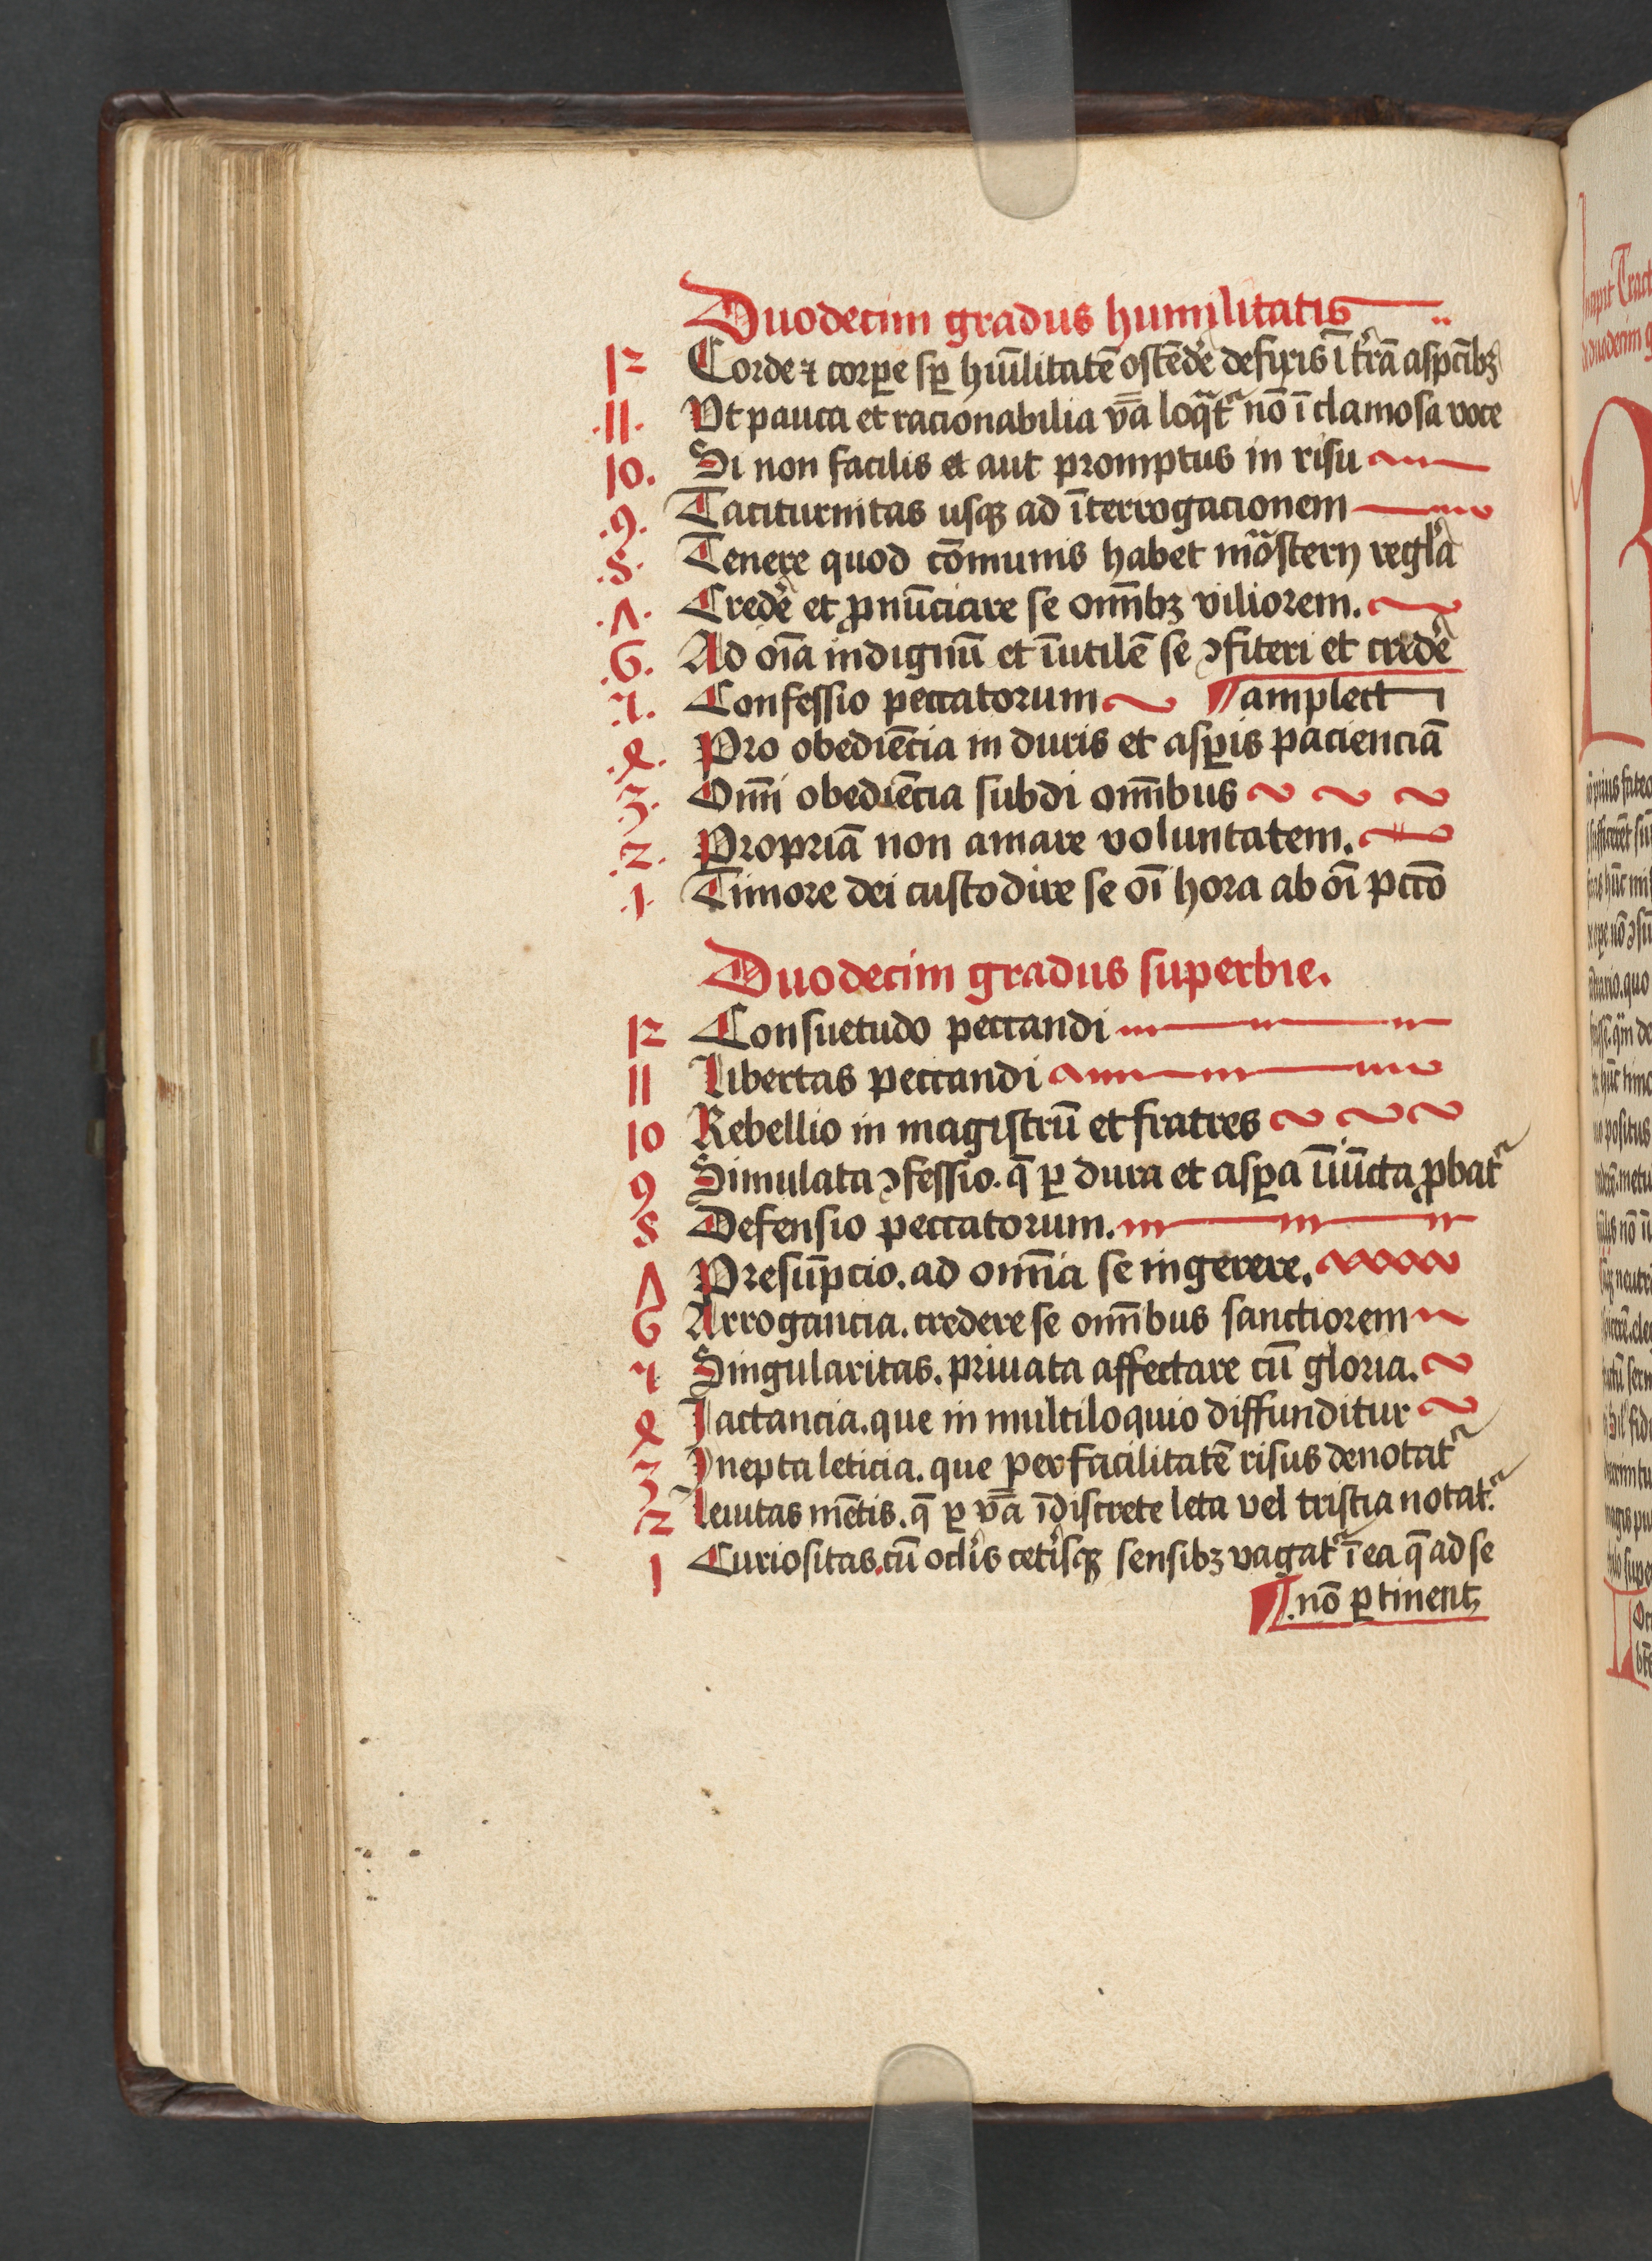 Duodecim gradus humilitatis
12 Corde ⁊ corꝑe sꝑ hūilitatē ostēdē defixis ī trā aspcībꝫ
.11. Vt pauca et racionabilia v̄a loqt̄ nō ī clamosa voce
10. Si non facilis et aut promptus in risu
.9. Taciturnitas usqꝫ ad īterrogacionem
.8. Tenere quod cōmunis habet mōastery regla
.7. Credē et ꝓnūciare se om̄ibꝫ viliorem.
.6. Ad oīa indignū et īutilē se ꝯfiteri et credē
.5. Confessio peccatorum ¶ amplect
.4. Pro obediēcia in duris et asꝑis pacienciā
.3. Om̄i obediēcia subdi om̄ibus
.2. Propriā non amare voluntatem.
.1. Timore dei custodire se oī hora ab oī pctō
Duodecim gradus superbie.
12 Consuetudo peccandi
11 Libertas peccandi
10 Rebellio in magistrū et fratres
9 Simulata ꝯfessio. q̄ ꝑ dura et asꝑa īiūcta ꝓbat
8 Defensio peccatorum.
7 Presūpcio. ad om̄ia se ingerere.
6 Arrogancia. credere se om̄ibus sanctiorem
5 Singularitas. priuata affectare cū gloria.
4 Jactancia. que in multiloquio diffunditur
3 Inepta leticia. que per facilitatē risus denotat
2 Leuitas mētis. q̄ ꝑ v̄a īdiscrete leta vel tristia notat.
1 Curiositas. cū oclis cetisqꝫ sensibꝫ vagat ī ea q̄ ad se
¶ .nō ꝑtinent